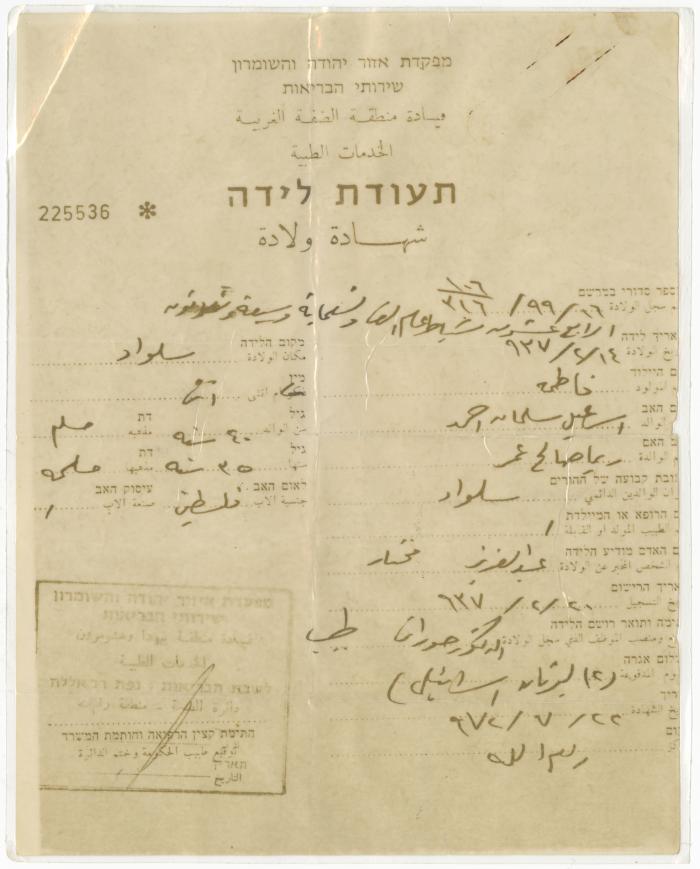 מפקדת אזור יהודה והשומרון
שירותי הבריאות
قيادة منطقة الضفة الغربية
الخدمات الطبية
225536 *
תעודת לידה
شهادة ولادة
ספר סדורי במרשם
م سجل الولادة ٩٩/١٦ ١٠٦ ٣١٦
الرابع عشر من شباط عام الف وتسعماية وسبعة وثلاثون
אריך לידה
يخ الولادة ٩٣٧/٢/١٤
מקום הלידה
مكان الولادة سلواد
ם היילוד
م المولود فاطمة
מין
انثى
ם האב
الوالد اسماعيل سلمان احمد
גיל
سن الوالد ٤٠ سنة
דת
مذهبه مسلم
ם האם
م الوالدة ريما صالح عمر
גיל
سنها ٣٥ سنة
דת
مذهبها مسلمة
ובת קבועה של ההורים
ان الوالدين الدائمي سلواد
לאום האב
جنسية الاب فلسطيني
עיסוק האב
صنعة الاب /
ם הרופא או המיילדת
الطبيب المولد او القابلة /
ם האדם מודיע הלידה
الشخص المخبر عن الولادة عبد العزيز مختار
אריך הרישום
يخ التسجيل ٩٣٧/٢/٢٠
ימה ותואר רושם הלידה
ع ومنصب الموظف الذي سجل الولادة الدكتور حوراني طبيب
שלום אגרה
وم المدفوعة (٢) ليرتان اسرائيلي)
ריך
يخ الشهادة ٩٧٢/٧/٢٢
رام الله
מפקדת איזור יהודה והשומרון
שירותי הבריאות
قيادة منطقة يهودا وشومرون
الخدمات الطبية
לשכת הבריאות : נפת רמאללה
دائرة الصحة - منطقة رام الله
חתימת קצין הרפואה וחותמת המשרד
توقيع طبيب الحكومة وختم الدائرة
תאריך
التاريخ